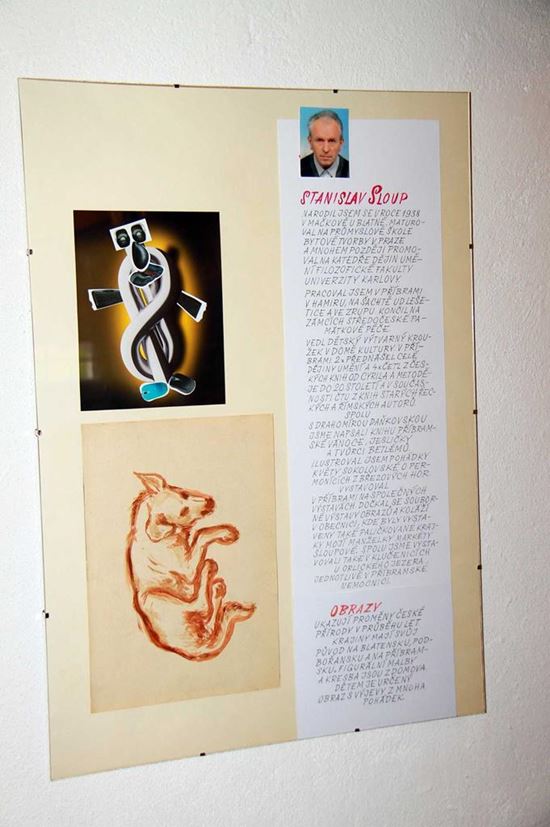 STANISLAV SLOUP
NARODIL JSEM SE V ROCE 1938
V MAČKOVĚ U BLATNÉ, MATURO-
VAL NA PRŮMYSLOVÉ ŠKOLE
BYTOVÉ TVORBY V PRAZE
A MNOHEM POZDĚJI PROMO-
VAL NA KATEDŘE DĚJIN UMĚ-
NÍ FILOZOFICKÉ FAKULTY
UNIVERZITY KARLOVY.
PRACOVAL JSEM V PŘÍBRAMI
V HAMIRU, NA ŠACHTĚ UD LEŠE-
TICE A VE ZRUPU. KONČIL NA
ZÁMCÍCH STŘEDOČESKÉ PA-
MÁTKOVÉ PÉČE.
VEDL DĚTSKÝ VÝTVARNÝ KROU-
ŽEK V DOMĚ KULTURY V PŘÍ-
BRAMI. 2x PŘEDNÁŠEL CELÉ
DĚJINY UMĚNÍ A 4x ČETL Z ČES-
KÝCH KNIH OD CYRILA A METODĚ-
JE DO 20. STOLETÍ A V SOUČAS-
NOSTI ČTU Z KNIH STARÝCH ŘEC-
KÝCH A ŘÍMSKÝCH AUTORŮ.
SPOLU
S DRAHOMÍROU DAŇKOVSKOU
JSME NAPSALI KNIHU PŘÍBRAM-
SKÉ VÁNOCE, JESLIČKY
A TVŮRCI BETLÉMŮ.
ILUSTROVAL JSEM POHÁDKY
KVĚTY SOKOLOVSKÉ O PER-
MONÍCÍCH Z BŘEZOVÝCH HOR.
VYSTAVOVAL
V PŘÍBRAMI NA SPOLEČNÝCH
VÝSTAVÁCH DOČKAL SE SOUBOR-
NÉ VÝSTAVY OBRAZŮ A KOLÁŽÍ
V OBECNICI, KDE BYLY VYSTA-
VENY TAKÉ PALIČKOVANÉ KRAJ-
KY MOJÍ MANŽELKY MARKÉTY
SLOUPOVÉ. SPOLU JSME VYSTA-
VOVALI TAKÉ V KLUČENICÍCH
U ORLICKÉHO JEZERA,
JEDNOTLIVĚ V PŘÍBRAMSKÉ
NEMOCNICI.
OBRAZY
UKAZUJÍ PROMĚNY ČESKÉ
PŘÍRODY V PRŮBĚHU LET.
KRAJINY MAJÍ SVŮJ
PŮVOD NA BLATENSKU, POD-
BOŘANSKU A NA PŘÍBRAM-
SKU. FIGURÁLNÍ MALBY
A KRESBA JSOU Z DOMOVA.
DĚTEM JE URČENÝ
OBRAZ S VÝJEVY Z MNOHA
POHÁDEK.